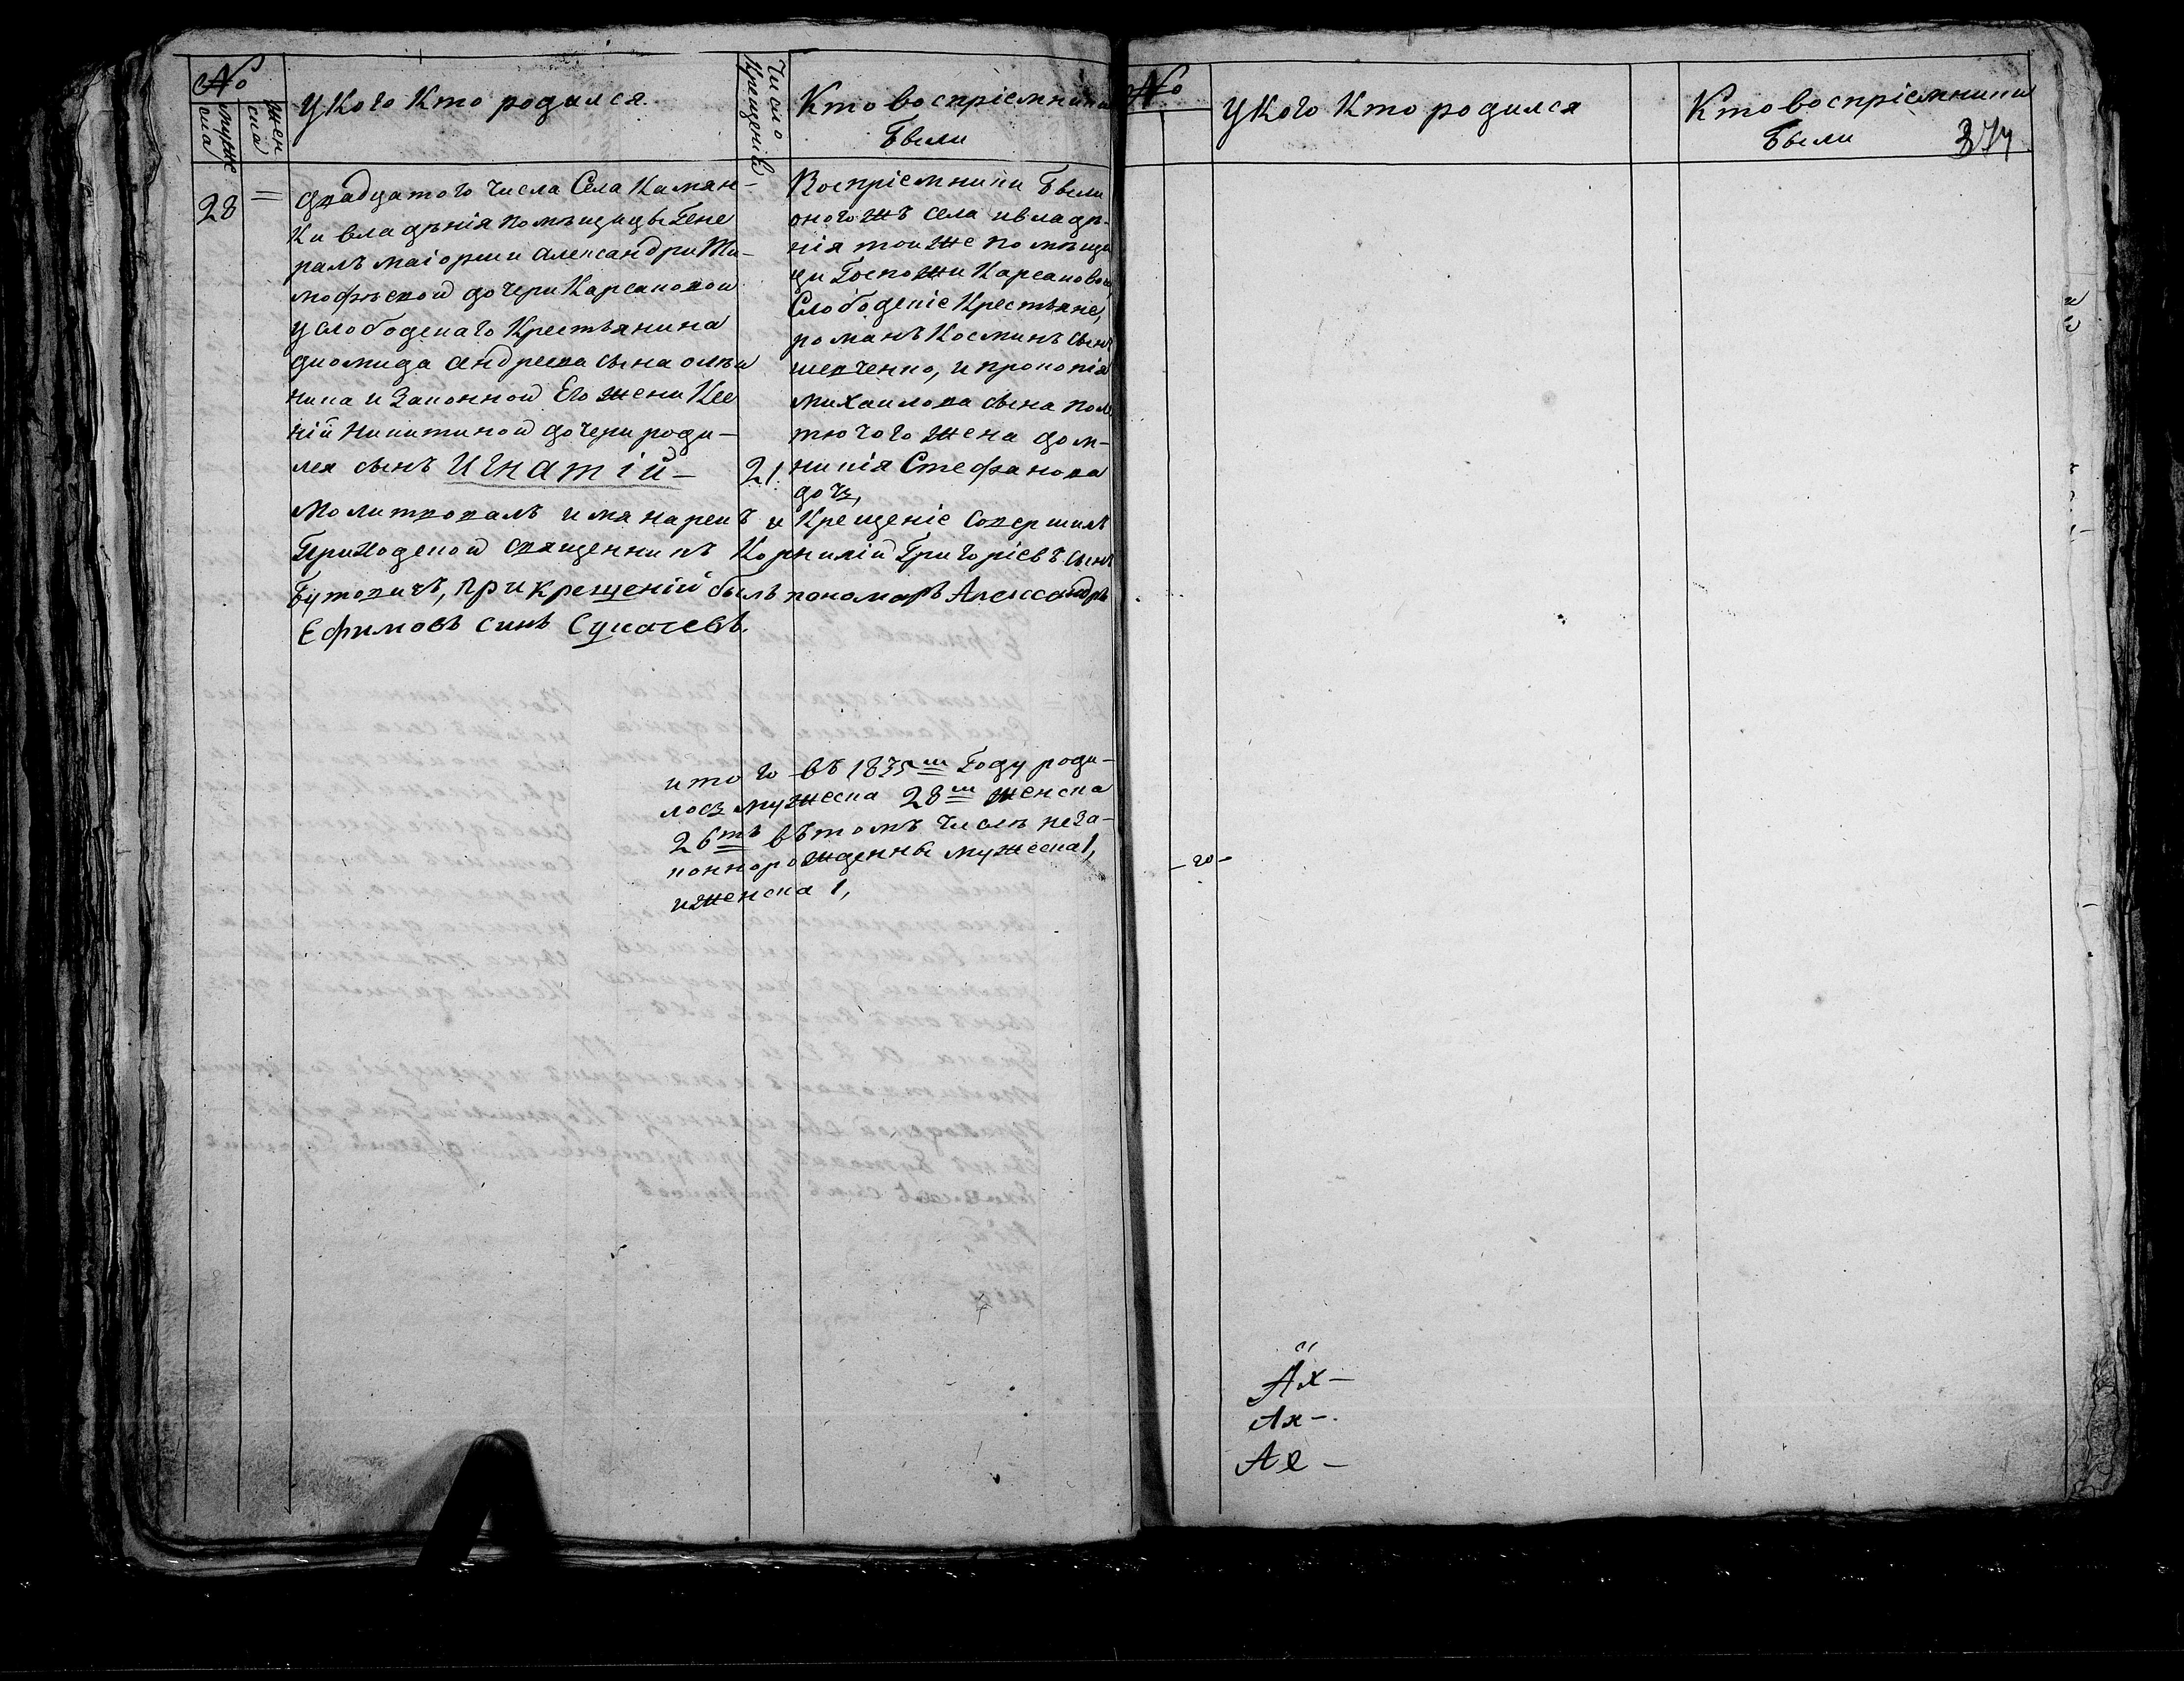 №
мужеска
женска
У кого кто родился.
Число крещенiй
Кто воспрiемники
были
28 =
двадцатого числа Села Камян-
ки владѣнiя помѣщицы Гене
ралъ маiорши александри Ти-
мофѣевой дочери Карсаковой
у слободскаго Крестьянина
диомида андреева сына олѣй
ника и Законной Его жени Ксе
нiй никитиной дочери роди-
лся сынъ Игнатiй – 21.
Воспрiемники были
оногожъ села и владѣ-
нiя тоиже помѣщи
ци Госпожи Карсаковой,
Слободскiе Крестьяне,
романъ Косминъ сынъ
шевченко, и прокопiя
михаилова сына пол
тючого жена дом-
никiя Стефанова
дочь,
Молитвовалъ и мя нарекъ и Крещенiе Совершилъ
Приходской священникъ Корнилiй Григорiевъ сынъ
Бутовичъ, при крещенiй былъ пономаръ Александръ
Ефимовъ синъ Сукачевъ.
итого въ 1835м Году роди-
лось мужеска 28м женска
26ть въ томъ числѣ неза-
коннорожденны мужеска 1,
и женска 1,
№
У кого кто родился
Кто воспрiемники
были
374
- 20 -
Ах –
Ах –.
Ае –